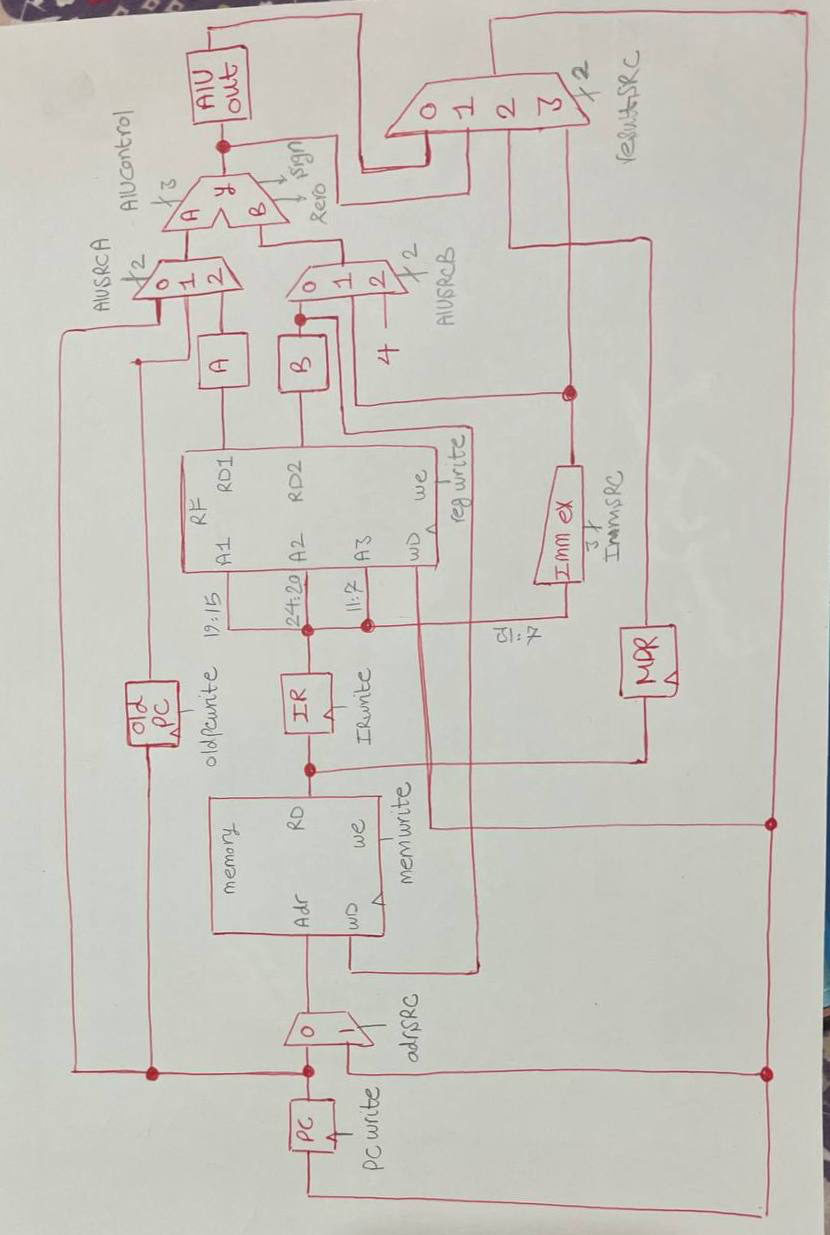 PC
PCwrite
0
1
adrSRC
memory
Adr
WD
RD
we
memwrite
old
PC
oldpcwrite
IR
IRwrite
MDR
19:15
24:20
11:7
31:7
RF
A1
A2
A3
WD
RD1
RD2
we
regwrite
Imm ex
3
ImmSRC
A
B
4
AlUSRCA
2
0
1
2
0
1
2
2
AlUSRCB
AlUcontrol
3
A
B
y
sign
zero
AlU
out
0
1
2
3
2
resultSRC